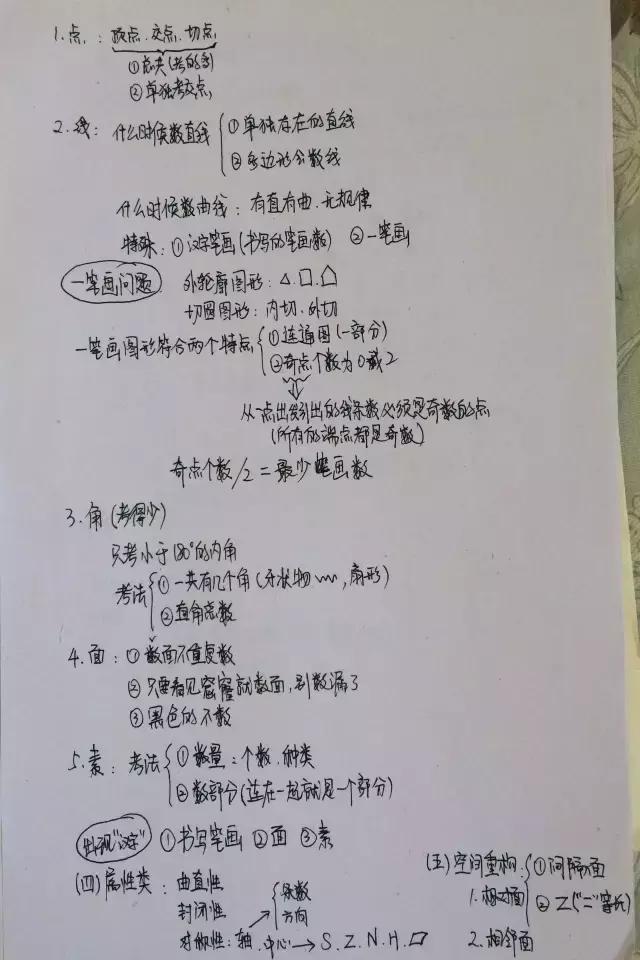 1. 点: 顶点、交点、切点
① 总共(考的多)
② 单独考交点
2. 线: 什么时候数直线 ① 单独存在的直线
② 多边形分数线
什么时候数曲线: 有直有曲、无规律
特殊: ① 汉字笔画(书写的笔画数) ② 一笔画
一笔画问题 外轮廓图形: △、□、⌂
切圆图形: 内切、外切
一笔画图形符合两个特点 ① 连通图(一部分)
② 奇点个数为0或2
从一点出发引出的线条数必须是奇数的点
(所有的端点都是奇数)
奇点个数/2 = 最少笔画数
3. 角(考得少)
只考小于180°的内角
考法 ① 一共有几个角(牙状物, 扇形)
② 直角总数
4. 面: ① 数面不重复数
② 只要看见窟窿就数面, 别数漏了
③ 黑色的不数
5. 素: 考法 ① 数量: 个数、种类
② 数部分(连在一起就是一个部分)
出现"汉字" ① 书写笔画 ② 面 ③ 素
(四) 属性类: 曲直性
封闭性
对称性: 轴、中心 → S、Z、N、H、▱
条数
方向
(五) 空间重构:
1. 相对面 ① 间隔面
② Z("二"等长)
2. 相邻面